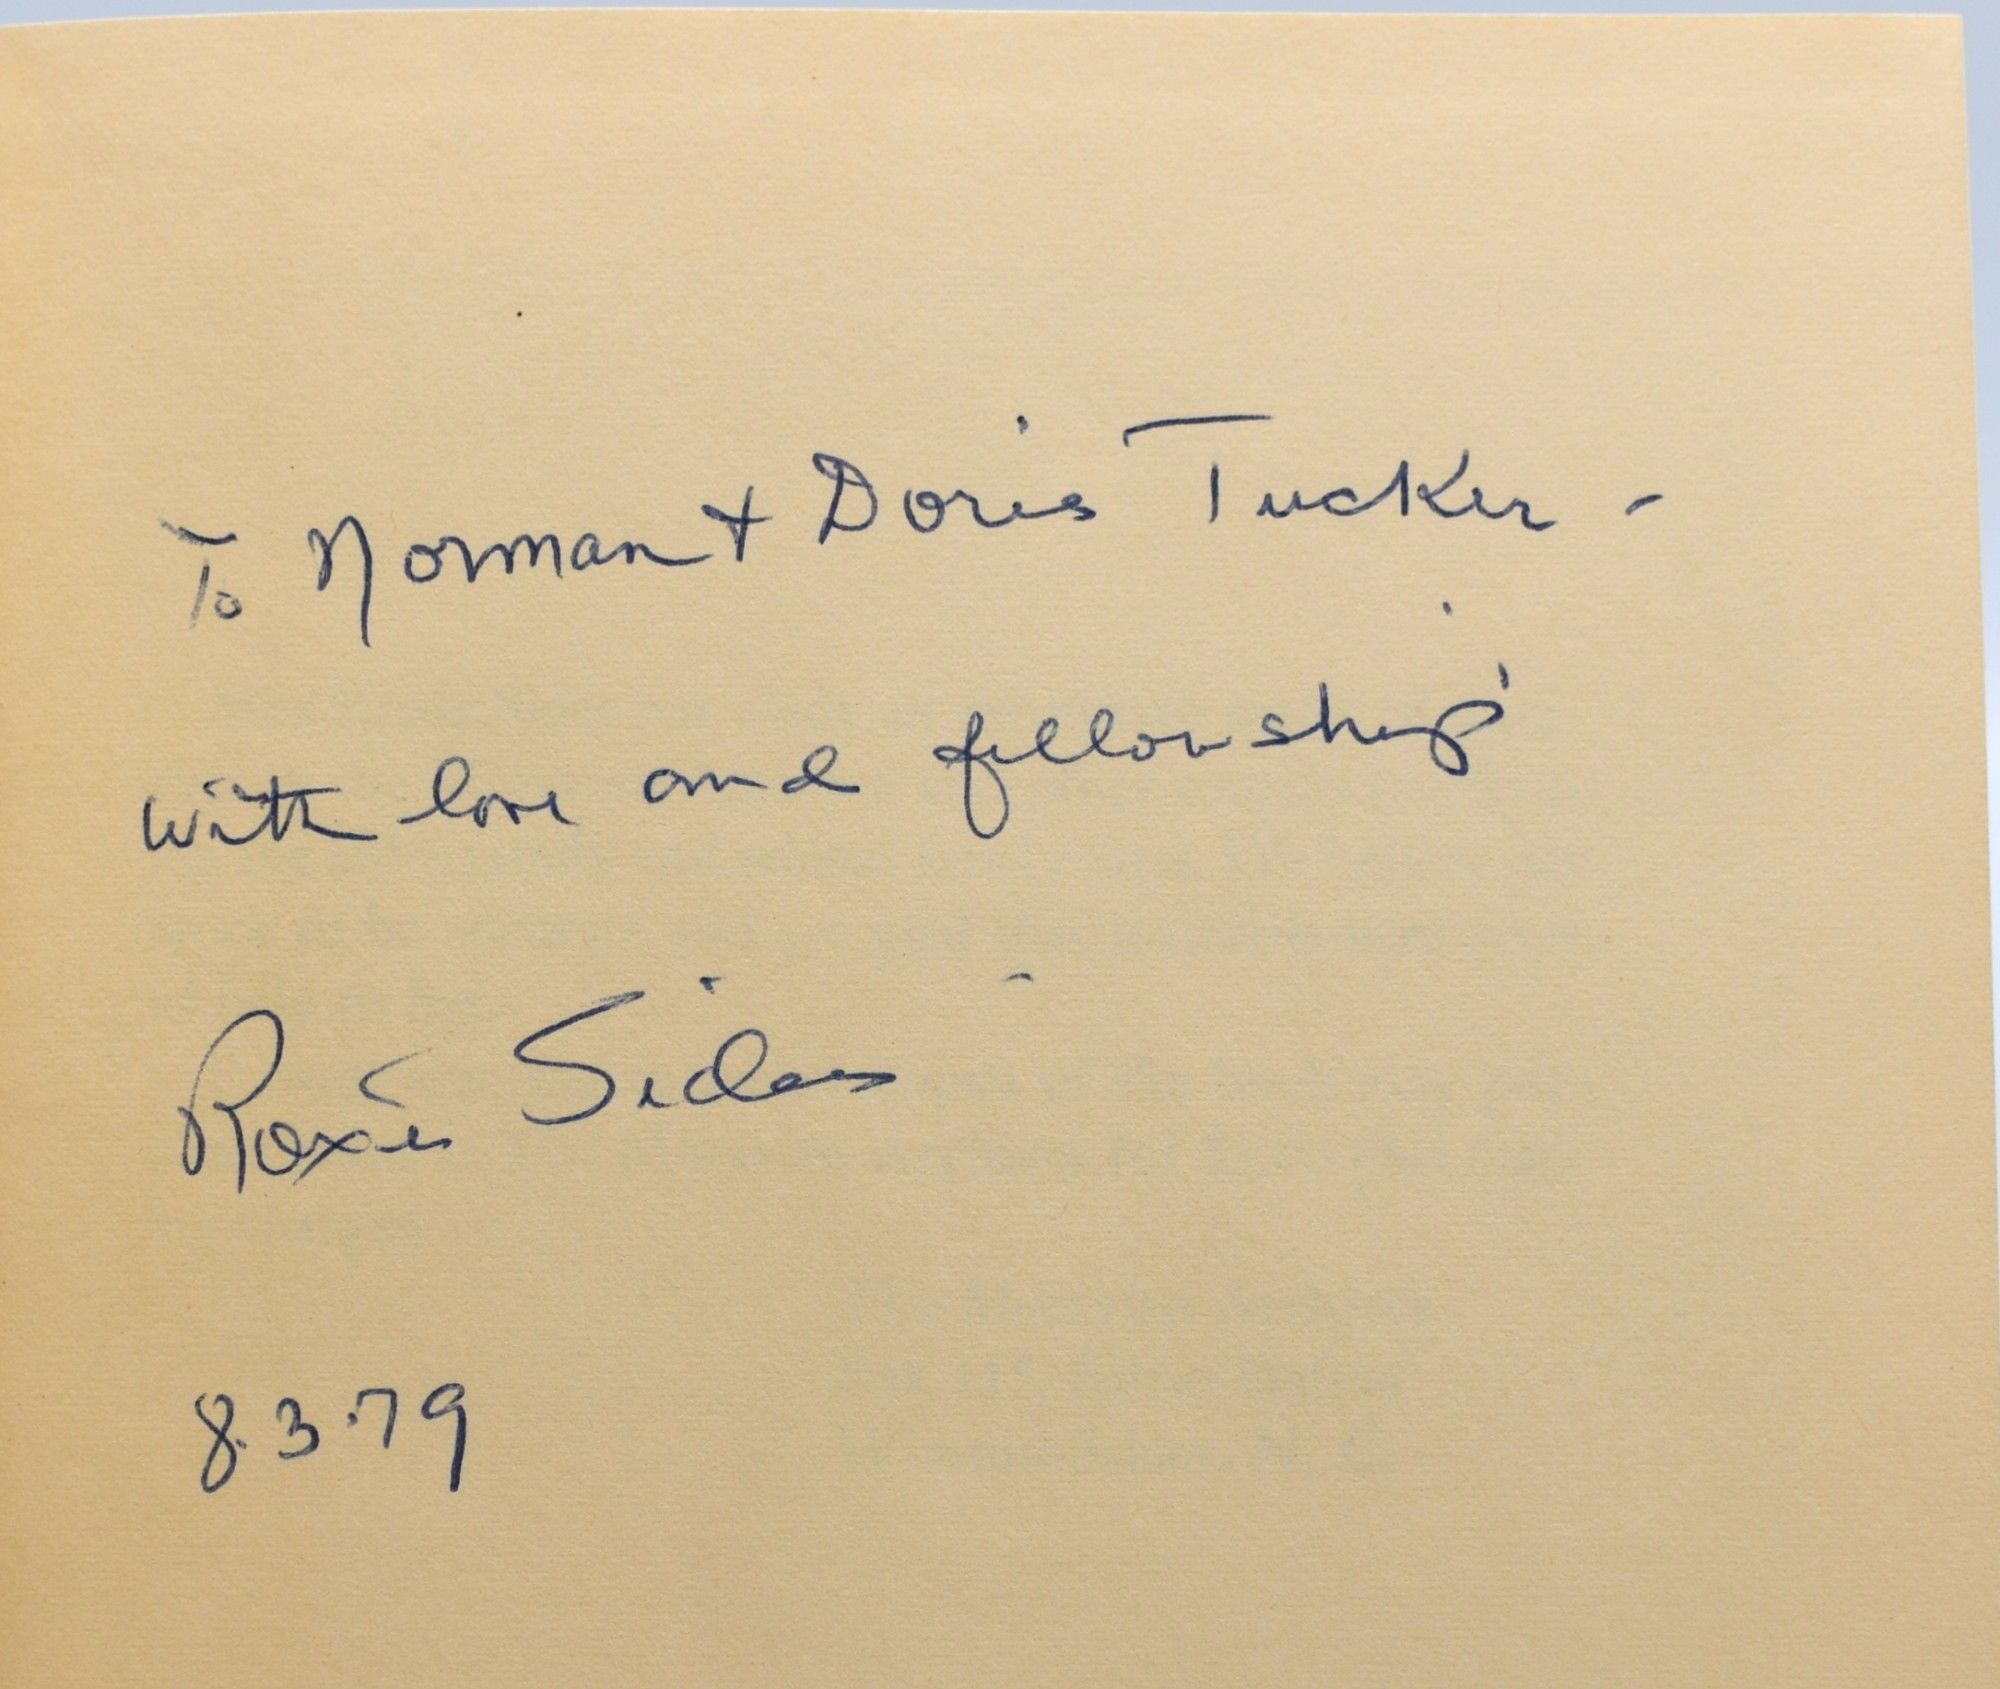 To Norman + Doris Tucker -
with love and fellowship
Roxie
8.3.79